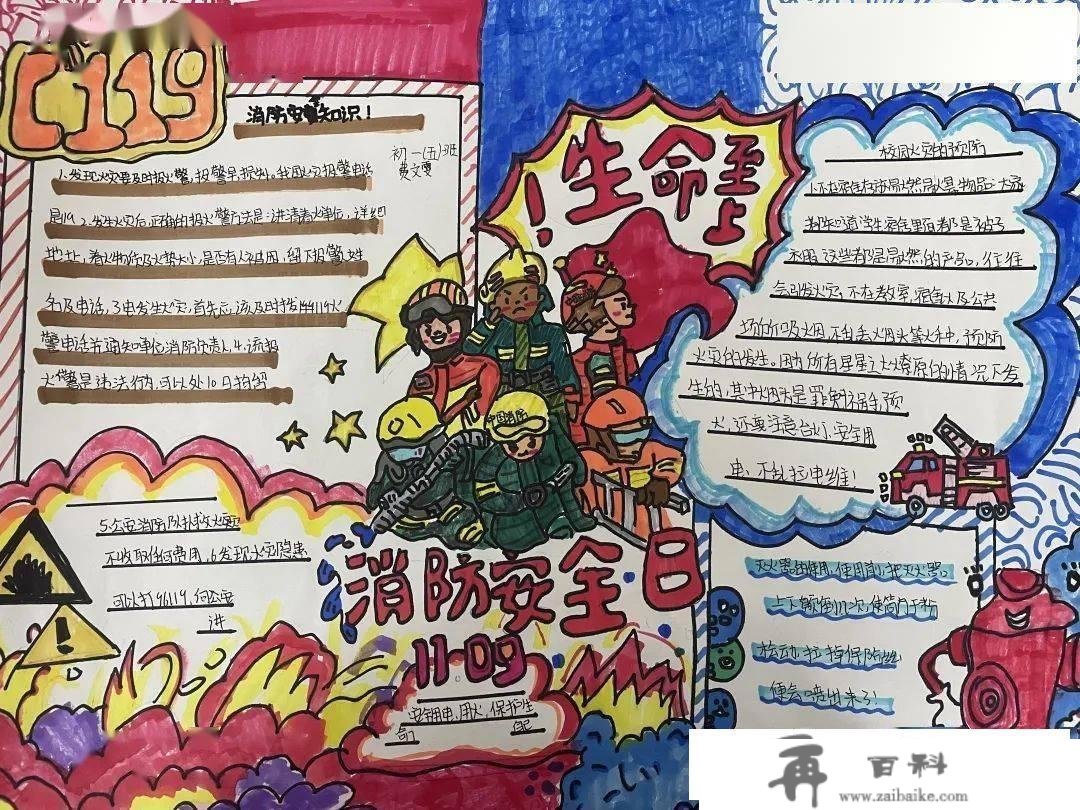 119
消防安全知识！
初一(五)班
费文雯
1.发现火灾要及时报火警,报警早损失小,我国火灾报警电话
是119.2.发生火灾后,正确的报火警方法是:讲清着火单位,详细
地址,着火物体及火势大小,是否有人被困,留下报警人姓
名及电话,3.电发生火灾,首先应该及时拨打119火
警电话并通知单位消防负责人.4.谎报
火警是违法行为,可以处10日拘留
5.公安消防队扑救火灾
不收取任何费用,6.发现火灾隐患
可以打96119,向公安
进
生命至上！
中国消防
消防安全日
11·09
安全用电,用火,保护生
命
校园火灾的预防
1.不在宿舍存放易燃易爆物品:大家
利用这些都是易燃的产品,往往
会引发火灾,不在教室,宿舍以及公共
场所吸火因,不乱丢火因头等火种,预防
火灾的发生。因为所有星星之火燎原的情况下发
生的,其中火因头是罪魁祸手,预
火,还要注意台灯,安全用
电、不乱拉电线！
灭火器的使用,使用前,把灭火器
上下颠倒几次,使筒内干粉
松动,拉掉保险丝
便会喷出来了！
再 百科
www.zaibaike.com